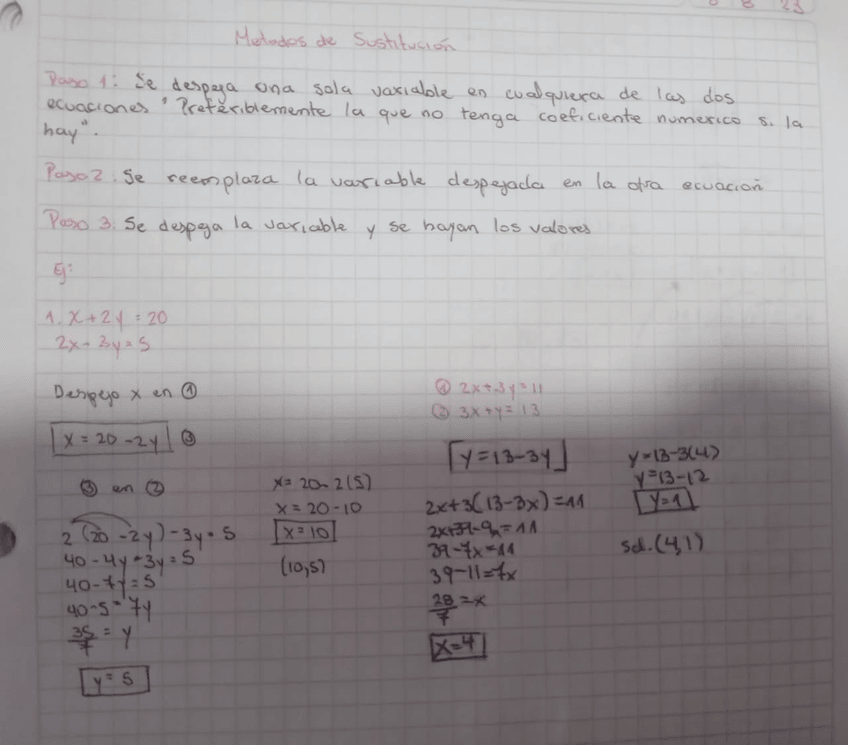 8 23
Metodos de Sustitución
Paso 1: Se despeja una sola variable en cualquiera de las dos
ecuaciones "Preferiblemente la que no tenga coeficiente numerico si la
hay".
Paso 2. Se reemplaza la variable despejada en la otra ecuación
Paso 3. Se despeja la variable y se hayan los valores
Ej:
1. x + 2y = 20
2x - 3y = 5
Despejo x en ①
x = 20 - 2y ③
③ en ②
2 (20 - 2y) - 3y = 5
40 - 4y - 3y = 5
40 - 7y = 5
40 - 5 = 7y
35/7 = y
y = 5
x = 20 - 2(5)
x = 20 - 10
x = 10
(10,5)
① 2x + 3y = 11
② 3x + y = 13
y = 13 - 3y
2x + 3(13 - 3x) = 11
2x + 39 - 9x = 11
39 - 7x = 11
39 - 11 = 7x
28/7 = x
x = 4
y = 13 - 3(4)
y = 13 - 12
y = 1
Sol. (4,1)